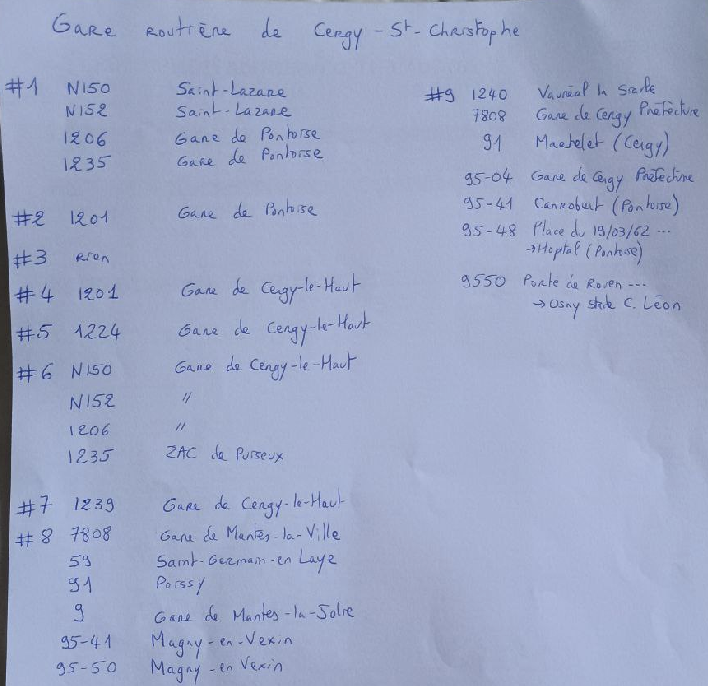 Gare routière de Cergy-St-Christophe
#1 N150 Saint-Lazare
N152 Saint-Lazare
1206 Gare de Pontoise
1235 Gare de Pontoise
#2 1201 Gare de Pontoise
#3 Rien
#4 1201 Gare de Cergy-le-Haut
#5 1224 Gare de Cergy-le-Haut
#6 N150 Gare de Cergy-le-Haut
N152 "
1206 "
1235 ZAC de Puiseux
#7 1239 Gare de Cergy-le-Haut
#8 7808 Gare de Mantes-la-Ville
59 Saint-Germain-en Laye
91 Poissy
9 Gare de Mantes-la-Jolie
95-41 Magny-en-Vexin
95-50 Magny-en Vexin
#9 1240 Vauréal la Siaule
7808 Gare de Cergy Préfecture
91 Martelet (Cergy)
95-04 Gare de Cergy Préfecture
95-41 Canrobert (Pontoise)
95-48 Place du 19/03/62 ...
→ Hôpital (Pontoise)
9550 Porte de Rosen ...
→ Osny stade C. Léon